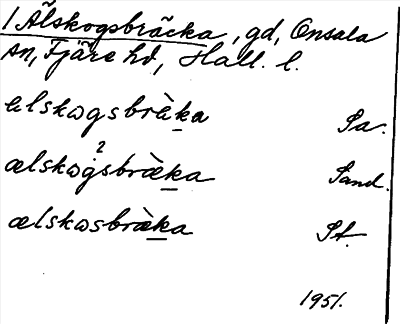 1 Älskogsbräcka, gd, Onsala
sn, Fjäre hd, Hall. l.
ælskωgsbræ̀ka Sa.
2
ælskωgsbræ̀ka Sand.
ælskωsbræ̀ka St.
1951.